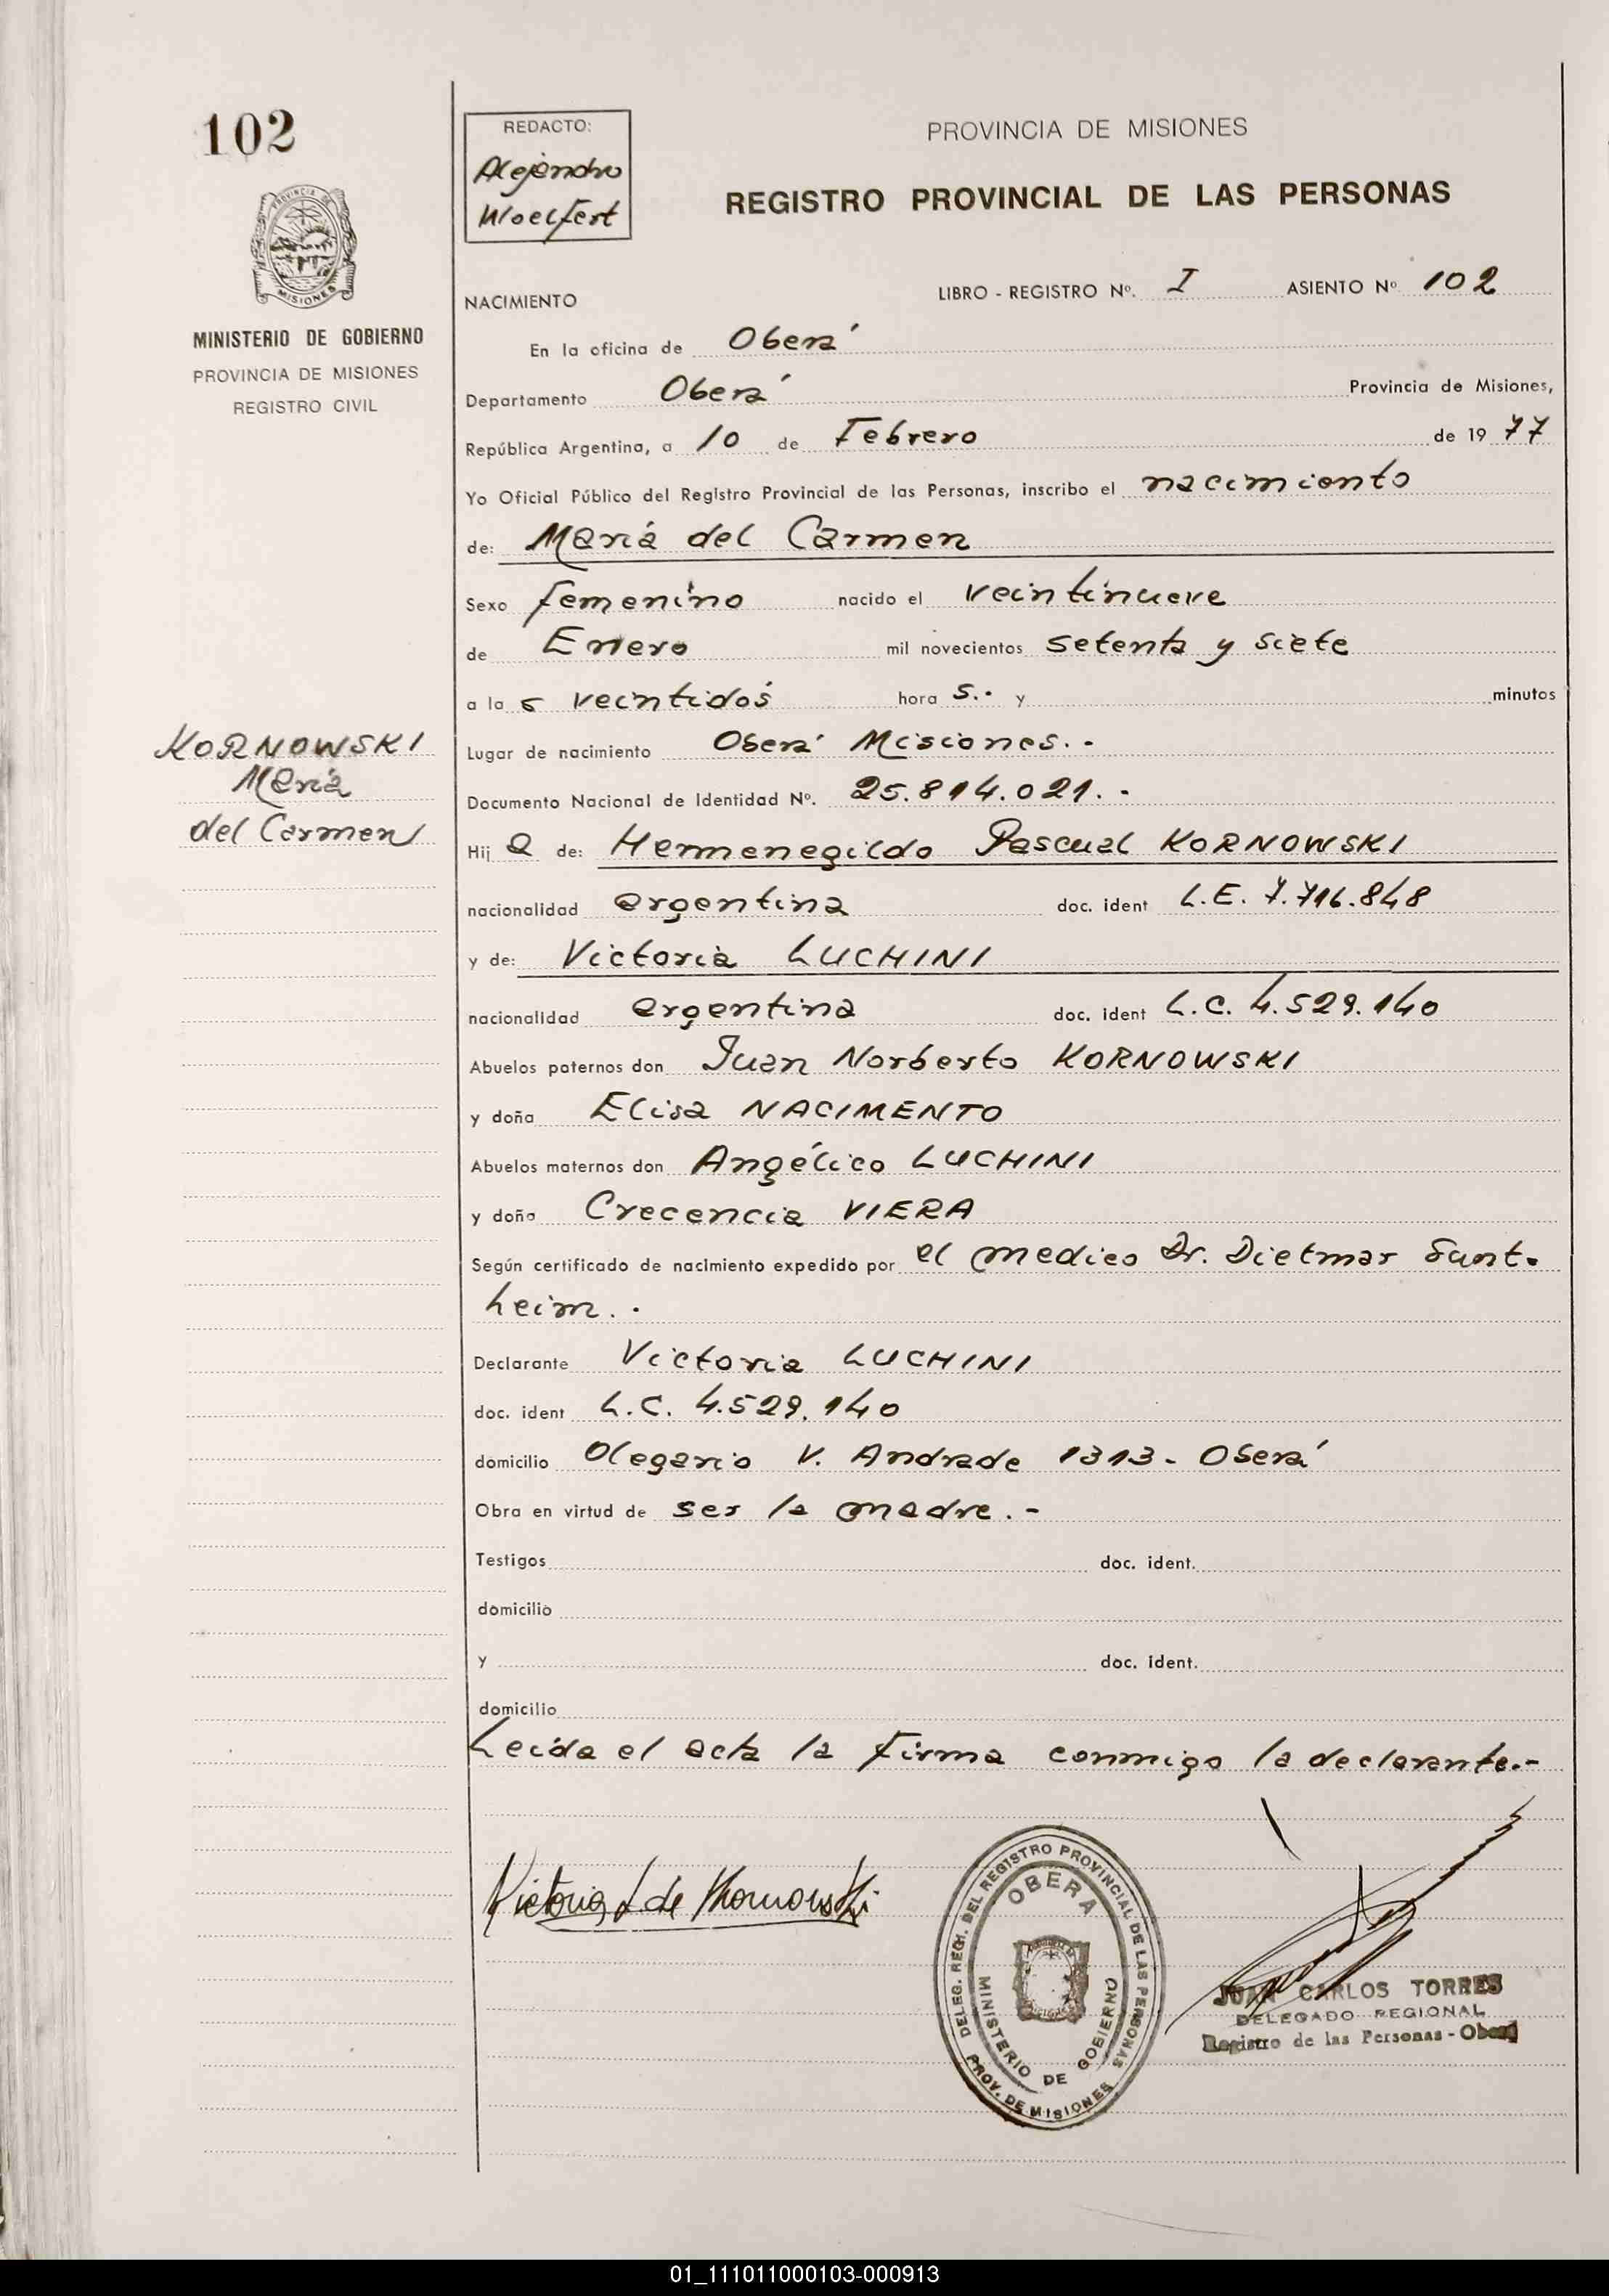 102
REDACTO:
Alejandro
Woelfert
PROVINCIA DE MISIONES
REGISTRO PROVINCIAL DE LAS PERSONAS
PROVINCIA DE
MISIONES
MINISTERIO DE GOBIERNO
PROVINCIA DE MISIONES
REGISTRO CIVIL
NACIMIENTO LIBRO - REGISTRO Nº. I ASIENTO Nº 102
En la oficina de Oberá
Departamento Oberá Provincia de Misiones,
República Argentina, a 10 de Febrero de 19 77
Yo Oficial Público del Registro Provincial de las Personas, inscribo el nacimiento
de: María del Carmen
Sexo femenino nacido el veintinueve
de Enero mil novecientos setenta y siete
a la s veintidós hora s.- y minutos
KORNOWSKI
María
del Carmen
Lugar de nacimiento Oberá Misiones.-
Documento Nacional de Identidad Nº. 25.814.021.-
Hij a de: Hermenegildo Pascual KORNOWSKI
nacionalidad argentina doc. ident L.E. 7.716.848
y de: Victoria LUCHINI
nacionalidad argentina doc. ident L.C. 4.529.140
Abuelos paternos don Juan Norberto KORNOWSKI
y doña Elisa NACIMENTO
Abuelos maternos don Angélico LUCHINI
y doña Crecencia VIERA
Según certificado de nacimiento expedido por el medico Dr. Dietmar Sunt-
heim.-
Declarante Victoria LUCHINI
doc. ident L.C. 4.529.140
domicilio Olegario V. Andrade 1313- Oberá
Obra en virtud de ser la madre.-
Testigos doc. ident.
domicilio
y doc. ident.
domicilio
Leída el acta la firma conmigo la declarante.-
Victoria L de Kornowski
DELEG. REGI. DEL REGISTRO PROVINCIAL DE LAS PERSONAS
OBERA
MINISTERIO DE GOBIERNO
PROV. DE MISIONES
JUAN CARLOS TORRES
DELEGADO REGIONAL
Registro de las Personas - Oberá
01_111011000103-000913